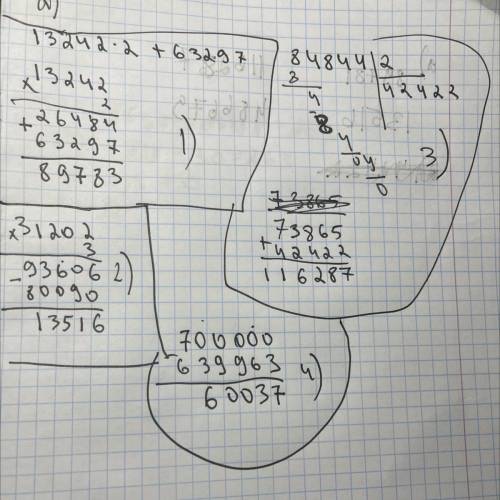 13242·2 + 63297
×13242
2
+26484
63297
89783
1)
84844|2
8
42422
4
8
4
04
4
0
3)
73865
73865
+42422
116287
×31202
3
-93606
80090
13516
2)
-700000
639963
60037
4)